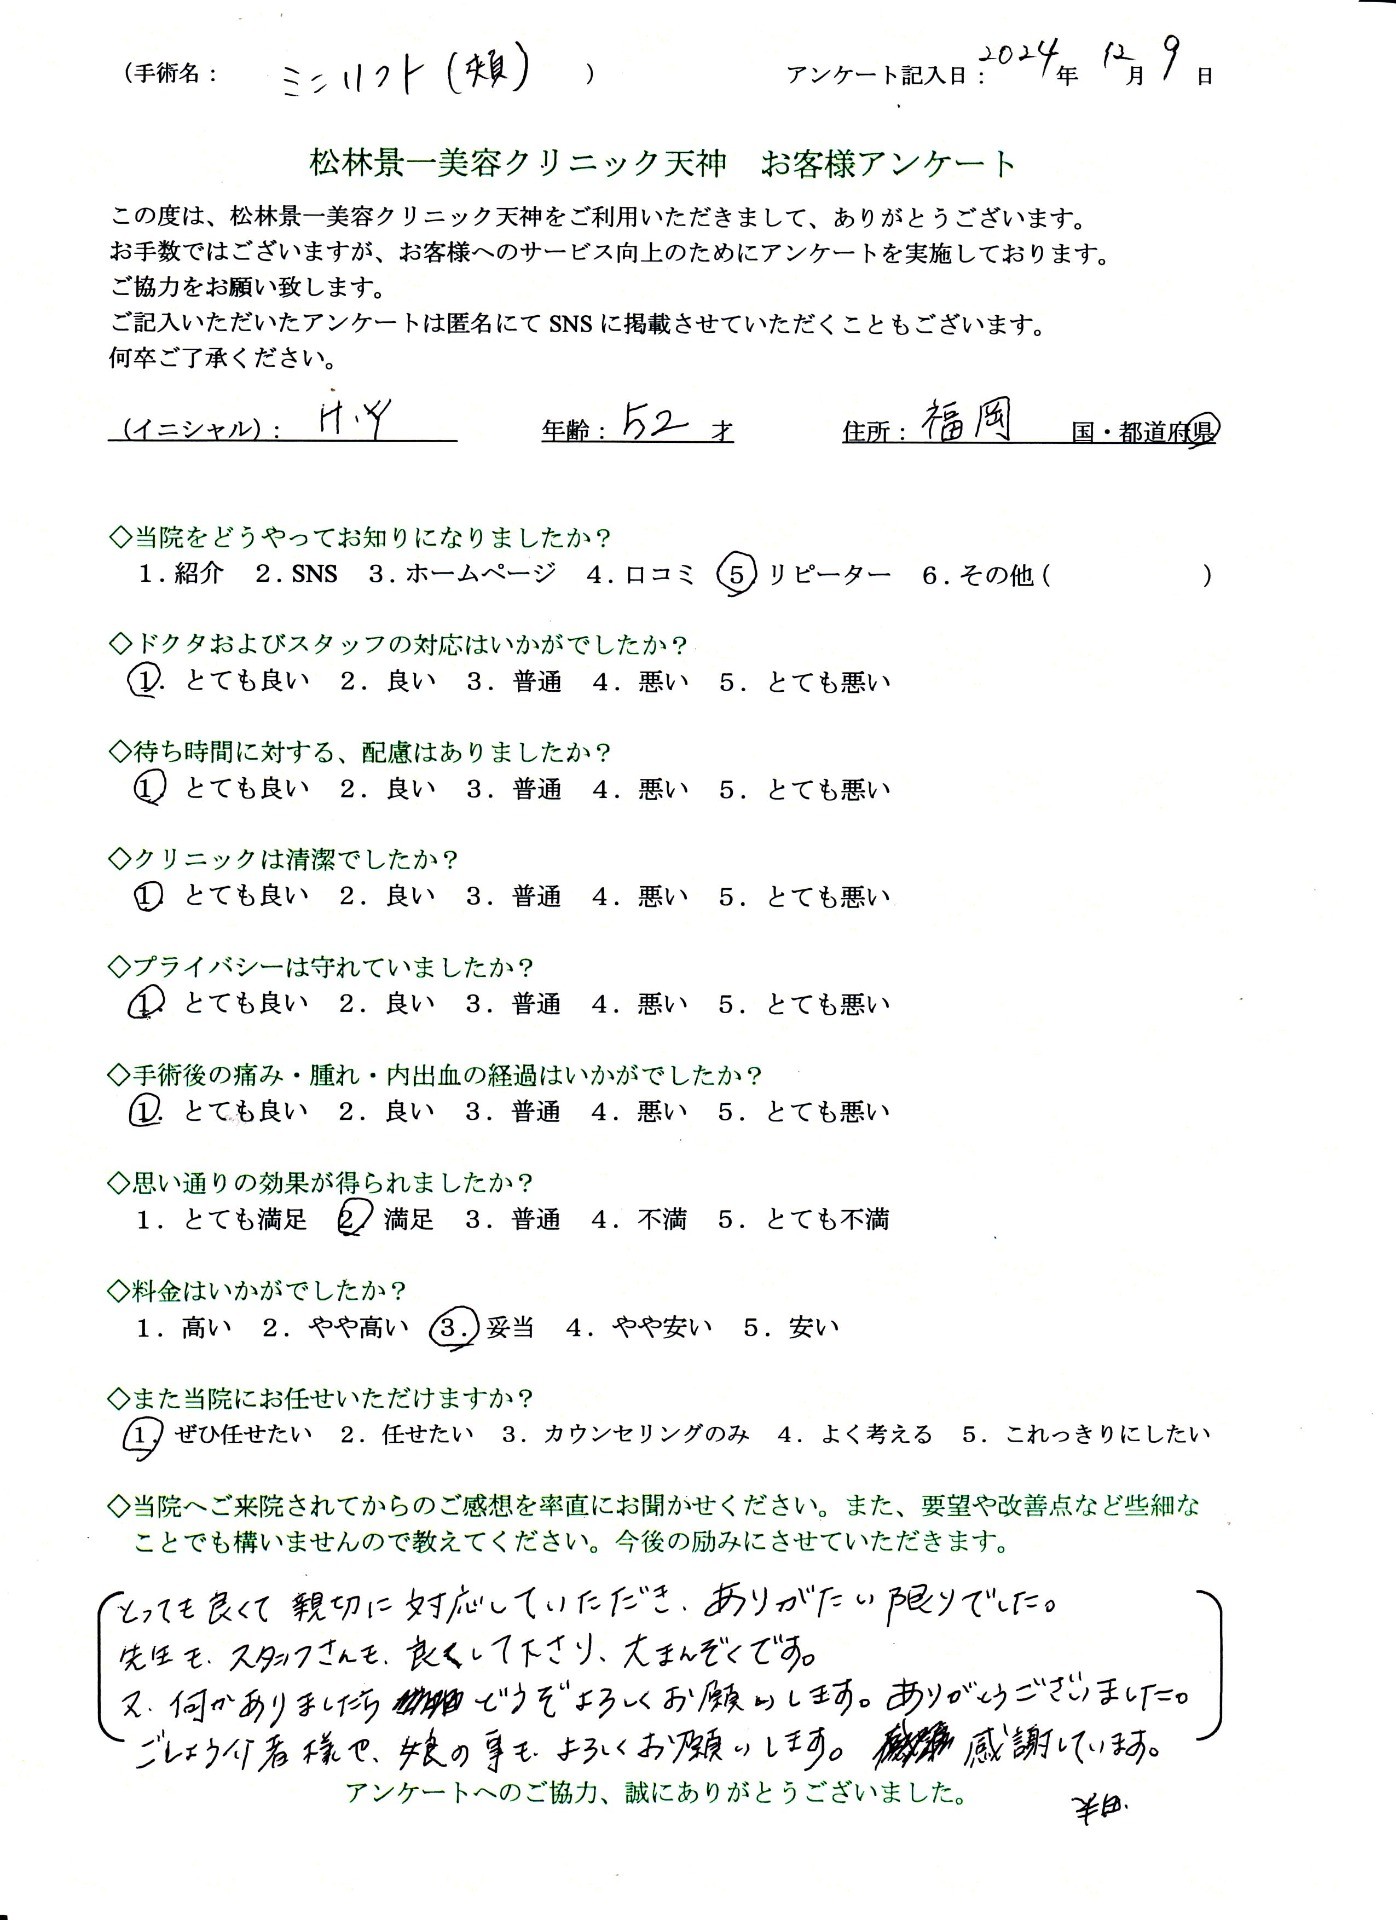 （手術名： ミニリフト(頬) ） アンケート記入日：2024年 12月 9日
松林景一美容クリニック天神　お客様アンケート
この度は、松林景一美容クリニック天神をご利用いただきまして、ありがとうございます。
お手数ではございますが、お客様へのサービス向上のためにアンケートを実施しております。
ご協力をお願い致します。
ご記入いただいたアンケートは匿名にて SNS に掲載させていただくこともございます。
何卒ご了承ください。
（イニシャル）： H.Y 年齢：52 才 住所：福岡 国・都道府県
◇当院をどうやってお知りになりましたか？
１. 紹介　２. SNS　３. ホームページ　４. 口コミ　５ リピーター　６. その他（　　　）
◇ドクタおよびスタッフの対応はいかがでしたか？
１．とても良い　２．良い　３．普通　４．悪い　５．とても悪い
◇待ち時間に対する、配慮はありましたか？
１　とても良い　２．良い　３．普通　４．悪い　５．とても悪い
◇クリニックは清潔でしたか？
１．とても良い　２．良い　３．普通　４．悪い　５．とても悪い
◇プライバシーは守れていましたか？
１．とても良い　２．良い　３．普通　４．悪い　５．とても悪い
◇手術後の痛み・腫れ・内出血の経過はいかがでしたか？
１．とても良い　２．良い　３．普通　４．悪い　５．とても悪い
◇思い通りの効果が得られましたか？
１．とても満足　２．満足　３．普通　４．不満　５．とても不満
◇料金はいかがでしたか？
１．高い　２．やや高い　３．妥当　４．やや安い　５．安い
◇また当院にお任せいただけますか？
１．ぜひ任せたい　２．任せたい　３．カウンセリングのみ　４．よく考える　５．これっきりにしたい
◇当院へご来院されてからのご感想を率直にお聞かせください。また、要望や改善点など些細な
ことでも構いませんので教えてください。今後の励みにさせていただきます。
とっても良くて親切に対応していただき、ありがたい限りでした。
先生も、スタッフさんも、良くして下さり、大まんぞくです。
又、何かありましたら どうぞよろしくお願いします。ありがとうございました。
ごしょう介者様や、娘の事も、よろしくお願いします。 感謝しています。
アンケートへのご協力、誠にありがとうございました。